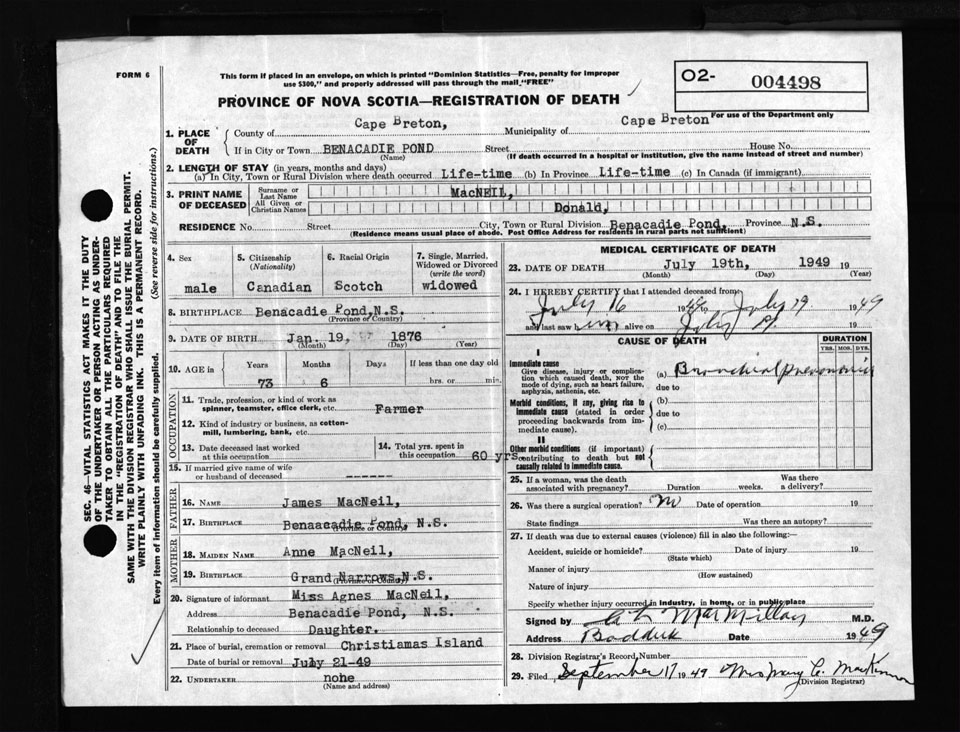 FORM 6
This form if placed in an envelope, on which is printed "Dominion Statistics—Free, penalty for improper
use $300," and properly addressed will pass through the mail "FREE"
O2- 004498
For use of the Department only
PROVINCE OF NOVA SCOTIA—REGISTRATION OF DEATH
1. PLACE OF DEATH
County of Cape Breton, Municipality of Cape Breton
If in City or Town BENACADIE POND Street House No.
(Name) (If death occurred in a hospital or institution, give the name instead of street and number)
2. LENGTH OF STAY (in years, months and days)
(a) In City, Town or Rural Division where death occurred Life-time (b) In Province Life-time (c) In Canada (if immigrant)
3. PRINT NAME OF DECEASED
Surname or Last Name MacNEIL,
All Given or Christian Names Donald,
RESIDENCE No. Street City, Town or Rural Division Benacadie Pond, Province N.S.
(Residence means usual place of abode. Post Office Address for residents in rural parts not sufficient)
4. Sex male
5. Citizenship (Nationality) Canadian
6. Racial Origin Scotch
7. Single, Married, Widowed or Divorced (write the word) widowed
8. BIRTHPLACE Benacadie Pond, N.S.
(Province or Country)
9. DATE OF BIRTH Jan. 19, 1876
(Month) (Day) (Year)
10. AGE in Years 73 Months 6 Days If less than one day old hrs. or min.
OCCUPATION
11. Trade, profession, or kind of work as spinner, teamster, office clerk, etc. Farmer
12. Kind of industry or business, as cotton-mill, lumbering, bank, etc.
13. Date deceased last worked at this occupation
14. Total yrs. spent in this occupation 60 yrs.
15. If married give name of wife or husband of deceased -------
FATHER
16. NAME James MacNeil,
17. BIRTHPLACE Benaacadie Pond, N.S.
(Province or Country)
MOTHER
18. MAIDEN NAME Anne MacNeil,
19. BIRTHPLACE Grand Narrows N.S.
(Province or Country)
20. Signature of informant Miss Agnes MacNeil,
Address Benacadie Pond, N.S.
Relationship to deceased Daughter.
21. Place of burial, cremation or removal Christiamas Island
Date of burial or removal July 21-49
22. UNDERTAKER none
(Name and address)
MEDICAL CERTIFICATE OF DEATH
23. DATE OF DEATH July 19th, 1949 19
(Month) (Day) (Year)
24. I HEREBY CERTIFY that I attended deceased from
July 16 1949 to July 19 1949
and last saw him alive on July 19 19
CAUSE OF DEATH
DURATION
YRS. MOS. DYS.
I
Immediate cause
Give disease, injury or complication which caused death, NOT the mode of dying, such as heart failure, asphyxia, asthenia, etc.
(a) Bronchial pneumonia
due to
Morbid conditions, if any, giving rise to immediate cause (stated in order proceeding backwards from immediate cause).
(b)
due to
(c)
II
Other morbid conditions (if important) contributing to death but not causally related to immediate cause.
25. If a woman, was the death associated with pregnancy? Duration weeks. Was there a delivery?
26. Was there a surgical operation? No Date of operation 19
State findings Was there an autopsy?
27. If death was due to external causes (violence) fill in also the following:—
Accident, suicide or homicide? Date of injury 19
(State which)
Manner of injury
(How sustained)
Nature of injury
Specify whether injury occurred in industry, in home, or in public place
Signed by C L MacMillan M.D.
Address Baddeck Date 1949
28. Division Registrar's Record, Number
29. Filed September 17 1949 Mrs Mary C. MacKinnon
(Division Registrar)
SEC. 46—VITAL STATISTICS ACT MAKES IT THE DUTY
OF THE UNDERTAKER OR PERSON ACTING AS UNDER-
TAKER TO OBTAIN ALL THE PARTICULARS REQUIRED
IN THE "REGISTRATION OF DEATH" AND TO FILE THE
SAME WITH THE DIVISION REGISTRAR WHO SHALL ISSUE THE BURIAL PERMIT.
WRITE PLAINLY WITH UNFADING INK. THIS IS A PERMANENT RECORD.
Every item of information should be carefully supplied. (See reverse side for instructions.)